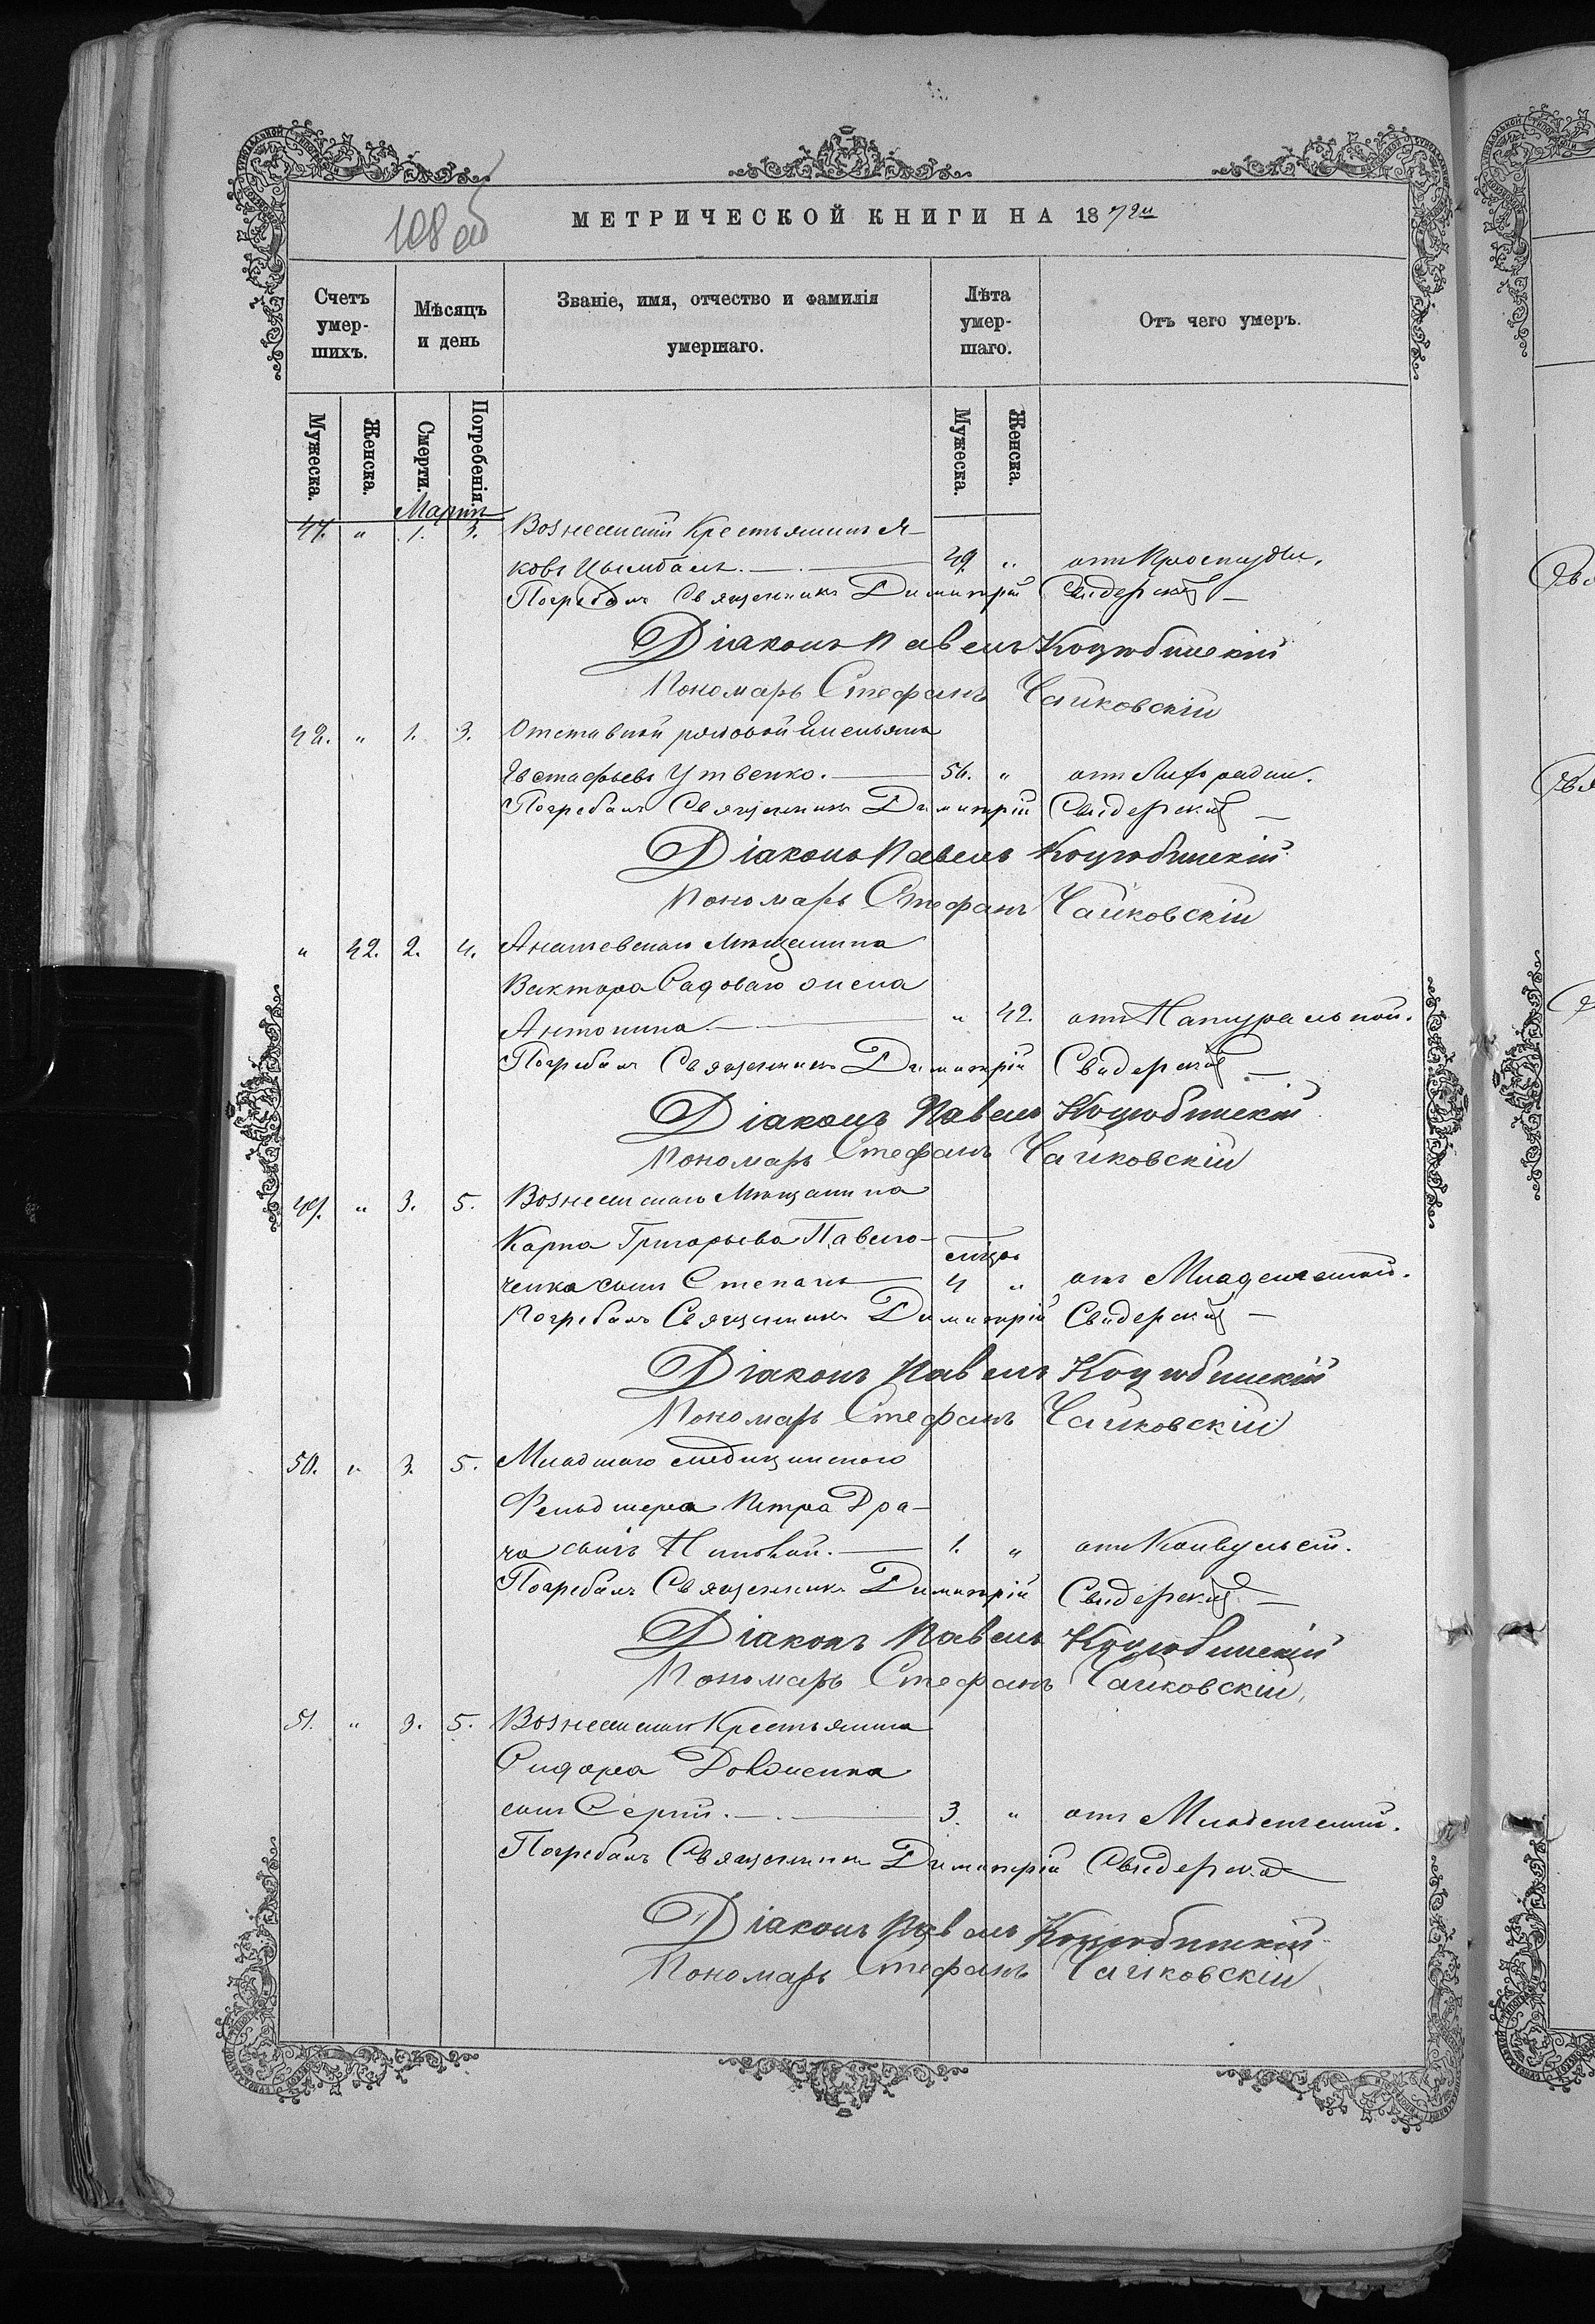 108 об
МЕТРИЧЕСКОЙ КНИГИ НА 1872й
Счетъ умер-шихъ.
Мѣсяцъ и день
Званіе, имя, отчество и фамилія умершаго.
Лѣта умер-шаго.
Отъ чего умеръ.
Мужеска. Женска. Смерти. Погребенія. Мужеска. Женска.
Мартъ
47. " 1. 3. Вознесенскій Крестьянинъ Я-
ковъ Цымбалъ. 49. " отъ Простуды.
Погребалъ Священникъ Димитрій Свидерскій
Діаконъ Павелъ Коцюбинскій
Пономарь Стефанъ Чайковскій
48. " 1. 3. Отставной рядовой Емельянъ
Евстафьевъ Утвенко. 56. "
Погребалъ Священникъ Димитрій Свидерскій
Діаконъ Павелъ Коцюбинскій
Пономарь Стефанъ Чайковскій
" 42. 2. 4. Ананьевскаго Мѣщанина
Виктора Садоваго жена
Антонина. " 42. отъ Натуральной.
Погребалъ Священникъ Димитрій Свидерскій
Діаконъ Павелъ Коцюбинскій
Пономарь Стефанъ Чайковскій
49. " 3. 5. Вознесенскаго Мѣщанина
Карпа Григорьева Павело-
ченка сынъ Степанъ 4 " отъ Младенческой.
Погребалъ Священникъ Димитрій Свидерскій
Діаконъ Павелъ Коцюбинскій
Пономарь Стефанъ Чайковскій
50. " 3. 5. Младшаго медицинскаго
Фельдшера Петра Дра-
ча сынъ Николай. 1. " отъ Конвульсій.
Погребалъ Священникъ Димитрій Свидерскій
Діаконъ Павелъ Коцюбинскій
Пономарь Стефанъ Чайковскій
51. " 3. 5. Вознесенскаго Крестьянина
Сидора Довженка
сынъ Сергій. 3. " отъ Младенческой.
Погребалъ Священникъ Димитрій Свидерскій
Діаконъ Павелъ Коцюбинскій
Пономарь Стефанъ Чайковскій